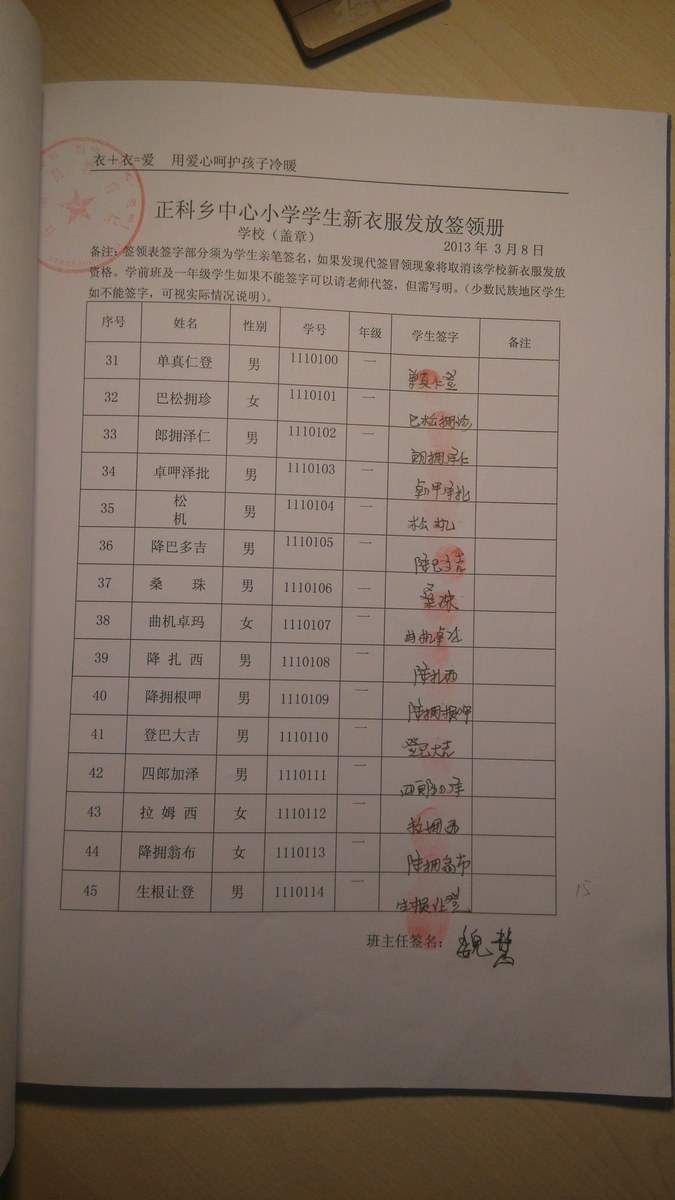 衣＋衣=爱 用爱心呵护孩子冷暖
正科乡中心小学学生新衣服发放签领册
学校（盖章） 2013 年 3 月 8 日
备注：签领表签字部分须为学生亲笔签名，如果发现代签冒领现象将取消该学校新衣服发放
资格。学前班及一年级学生如果不能签字可以请老师代签，但需写明。（少数民族地区学生
如不能签字，可视实际情况说明）。
序号 姓名 性别 学号 年级 学生签字 备注
31 单真仁登 男 1110100 一 单真仁登
32 巴松拥珍 女 1110101 一 巴松拥珍
33 郎拥泽仁 男 1110102 一 郎拥泽仁
34 卓呷泽批 男 1110103 一
35 松机 男 1110104 一 松机
36 降巴多吉 男 1110105 一 降巴多吉
37 桑 珠 男 1110106 一 桑珠
38 曲机卓玛 女 1110107 一 曲机卓玛
39 降 扎 西 男 1110108 一 降扎西
40 降拥根呷 男 1110109 一 降拥根呷
41 登巴大吉 男 1110110 一 登巴大吉
42 四郎加泽 男 1110111 一 四郎加泽
43 拉 姆 西 女 1110112 一
44 降拥翁布 女 1110113 一 降拥翁布
45 生根让登 男 1110114 一 生根让登
15
班主任签名： 魏慧